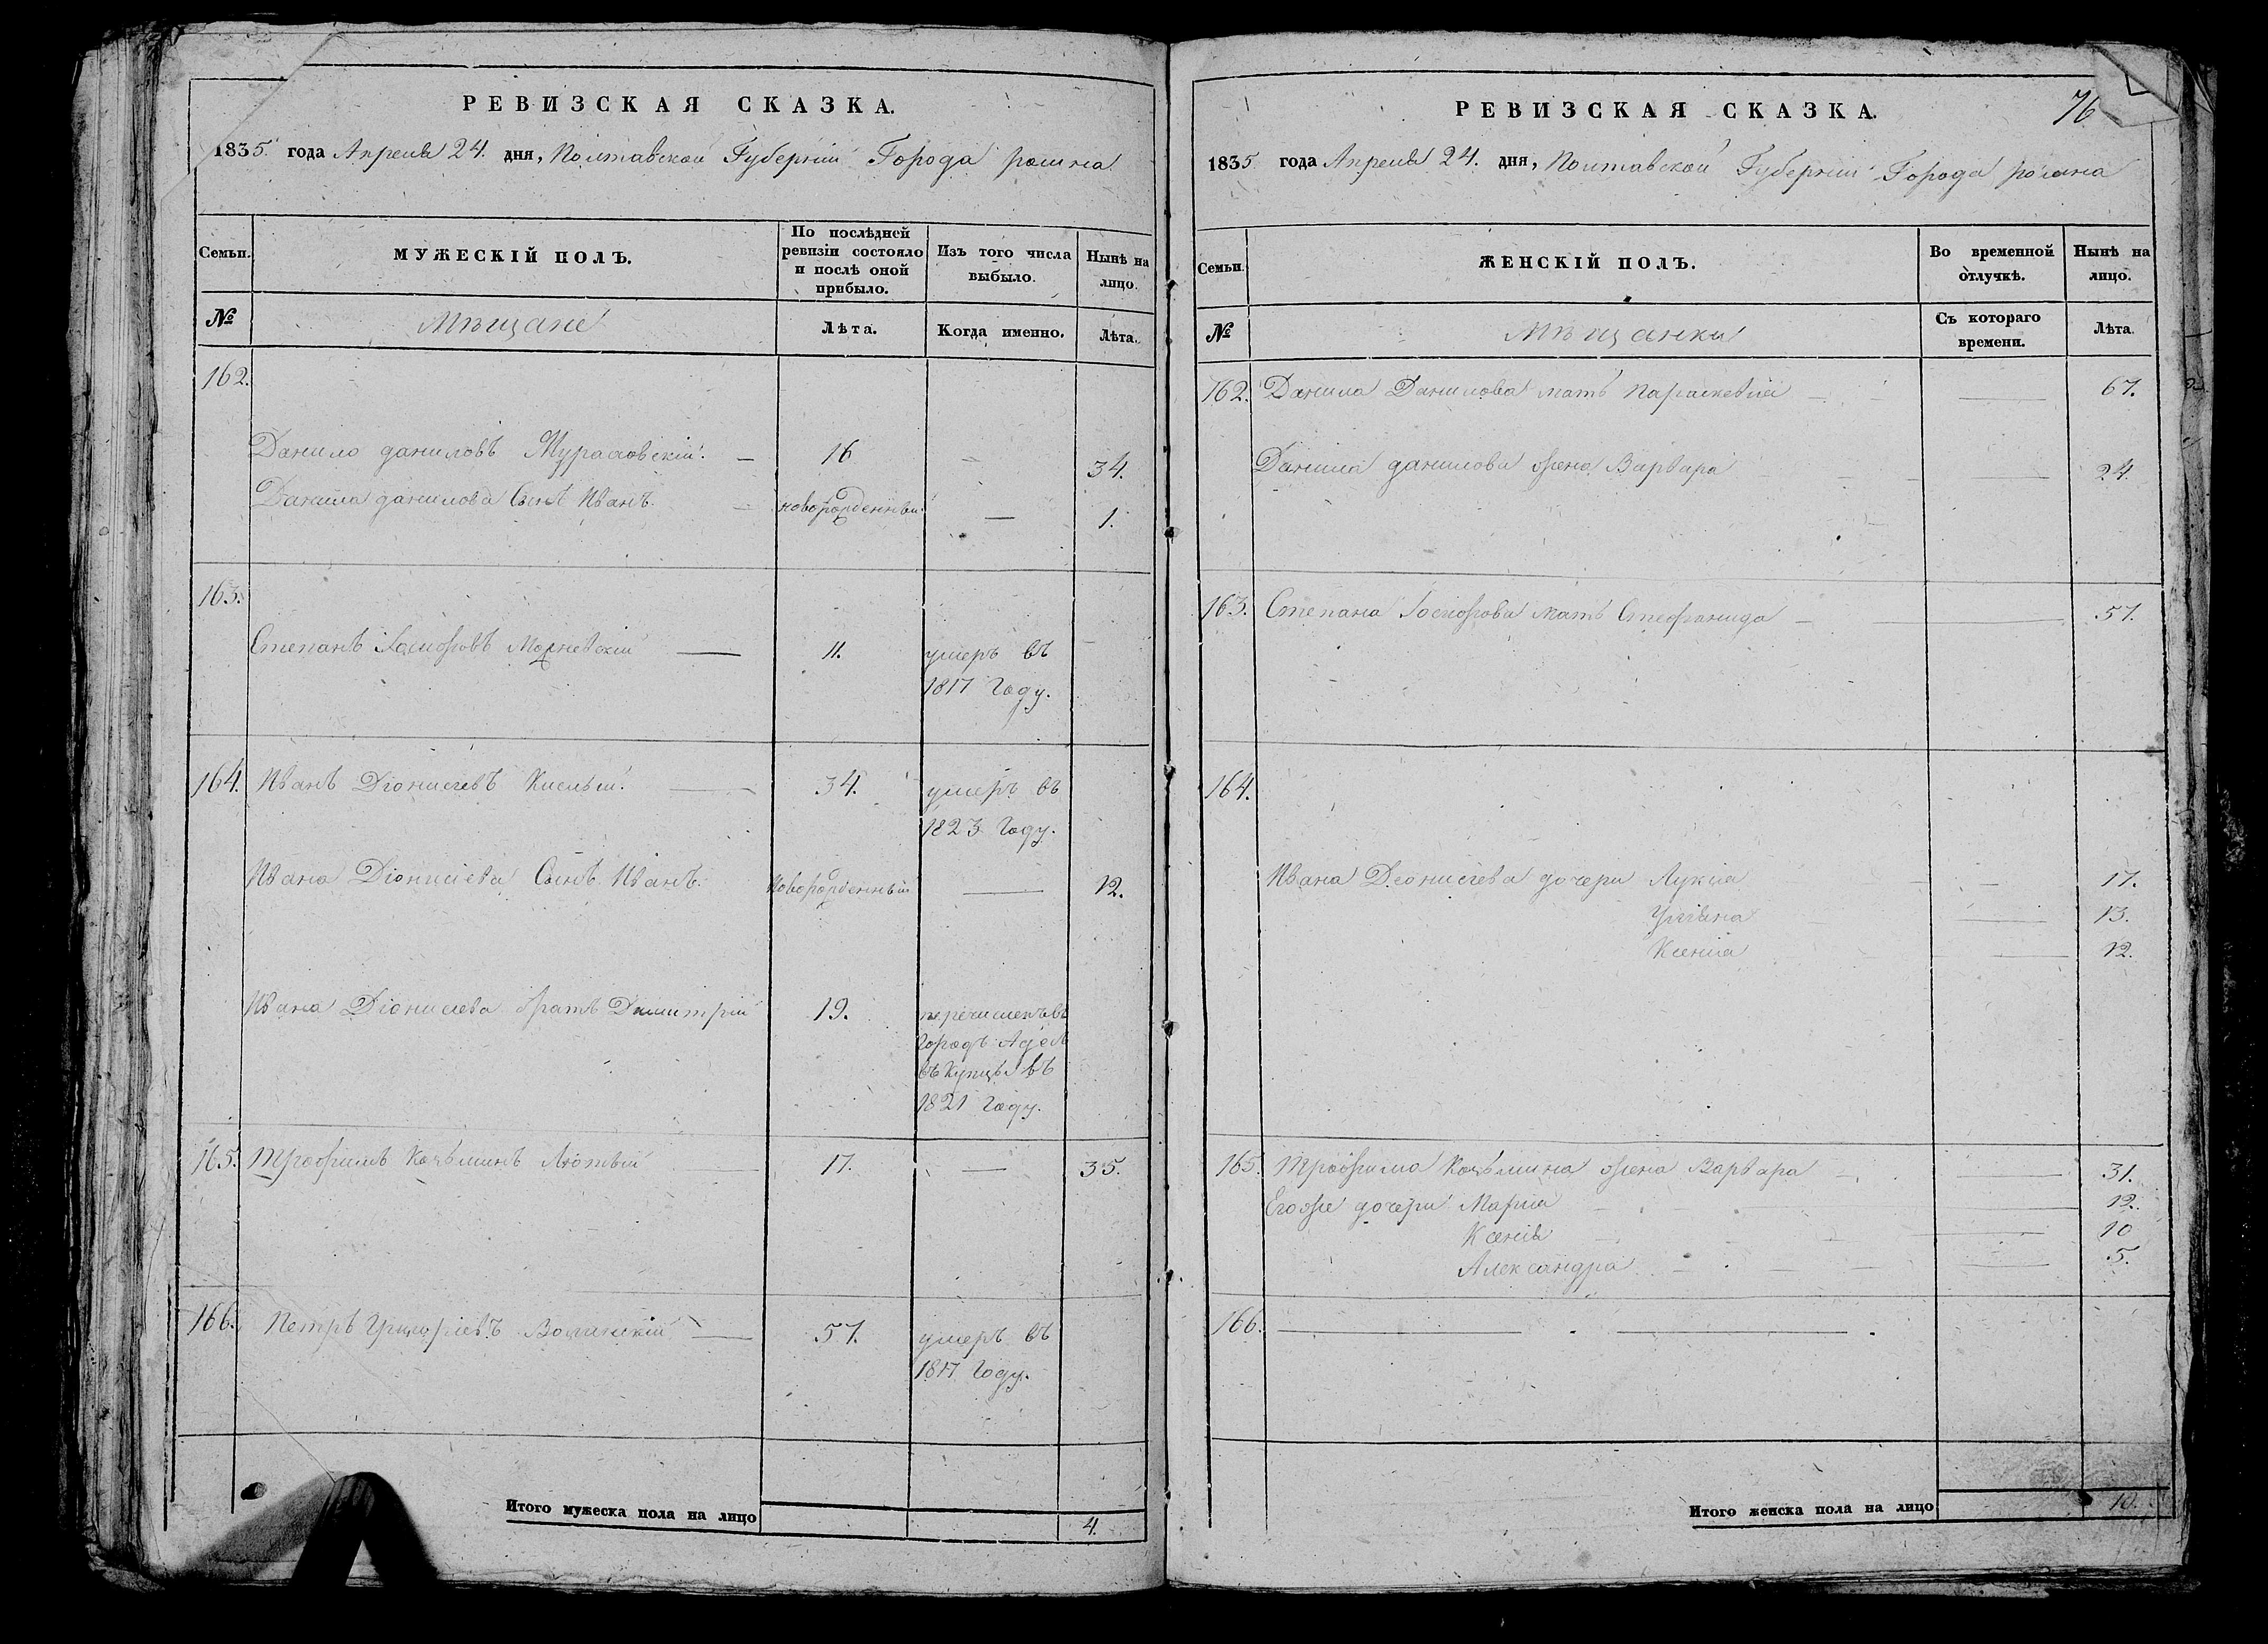 РЕВИЗСКАЯ СКАЗКА.
1835. года Апреля 24. дня, Полтавской Губернии Города ромна
Семьи.
МУЖЕСКІЙ ПОЛЪ.
По послѣдней ревизіи состояло и послѣ оной прибыло.
Изъ того числа выбыло.
Нынѣ на лицо.
№
Мѣщане
Лѣта.
Когда именно.
Лѣта.
162.
Данило даниловъ 16 34.
Данила данилова Сынъ Иванъ. новорожденный — 1.
163.
Степанъ 11. умеръ въ
1817 Году.
164. Иванъ Діонисіевъ 34. умеръ въ
1823 Году.
Ивана Діонисіева Сынъ Иванъ. Новорожденный — 12.
Ивана Діонисиева братъ Димитрій 19. перечисленъ въ
Городъ
въ Купцы въ
1821 Году.
165. Трофимъ Козьминъ Лютый 17. — 35.
166. Петръ Григорьевъ 57. умеръ въ
1817 Году.
Итого мужеска пола на лицо 4.
76
РЕВИЗСКАЯ СКАЗКА.
1835 года Апреля 24. дня, Полтавской Губернии Города ромна
Семьи.
ЖЕНСКІЙ ПОЛЪ.
Во временной отлучкѣ.
Нынѣ на лицо.
№
Мѣщанки
Съ котораго времени.
Лѣта.
162. Данила Данилова мать Параскевия — 67.
Данила данилова жена Варвара — 24.
163. Степана мать Стефанида — 57.
164.
Ивана Дионисиева дочери Лукия 17.
Улияна — 13.
Ксения — 12.
165. Трофима Козьмина жена Варвара — 31.
Егоже дочери Мария — 12.
Ксения — 10
Александра — 5.
166. — . — .
Итого женска пола на лицо 10.